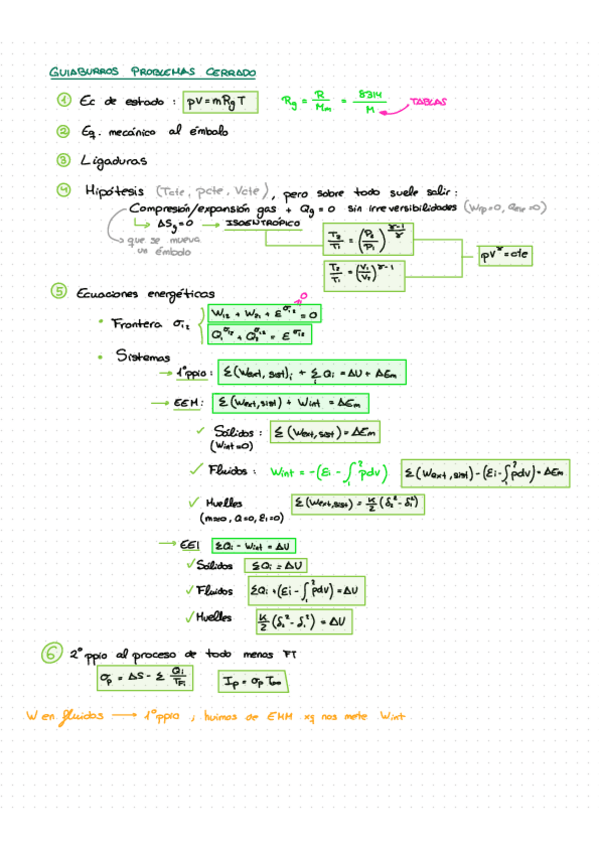 GUIABURROS PROBLEMAS CERRADO
① Ec de estado : pV = mRgT Rg = R/Mm = 8314/M → TABLAS
② Eq. mecánico al émbolo
③ Ligaduras
④ Hipótesis (Tcte, pcte, Vcte), pero sobre todo suele salir:
Compresión/expansión gas + Qg = 0 sin irreversibilidades
↳ ΔSg = 0 → ISOENTRÓPICO
que se mueva
un émbolo
T₂/T₁ = (P₂/P₁)^((γ-1)/γ)
T₂/T₁ = (V₁/V₂)^(γ-1)
pV^γ = cte
⑤ Ecuaciones energéticas
• Frontera σ₁₂
W₁₂ + W₂₁ + E^σ₁₂ = 0
0
Q₁^σ₁₂ + Q₂^σ₁₂ = E^σ₁₂
• Sistemas
→ 1ºppio : Σ(Wext, sist)ᵢ + Σᵢ Qᵢ = ΔU + ΔEm
→ EEM: Σ(Wext, sist) + Wint = ΔEm
✓ Sólidos : Σ(Wext, sist) = ΔEm
(Wint=0)
✓ Fluidos : Wint = -(Ei - ∫₁² pdv) Σ(Wext, sist) - (Ei - ∫₁² pdv) = ΔEm
✓ Muelles Σ(Wext, sist) = K/2 (δ₂² - δ₁²)
(m=0, Q=0, Ei=0)
→ EEI ΣQi - Wint = ΔU
✓ Sólidos ΣQi = ΔU
✓ Fluidos ΣQi + (Ei - ∫₁² pdv) = ΔU
✓ Muelles K/2 (δ₂² - δ₁²) = ΔU
⑥ 2º ppio al proceso de todo menos FT
σp = ΔS - Σ Qi/TFi Ip = σp T∞
W en fluidos → 1ºppio , huimos de EMM xq nos mete Wint